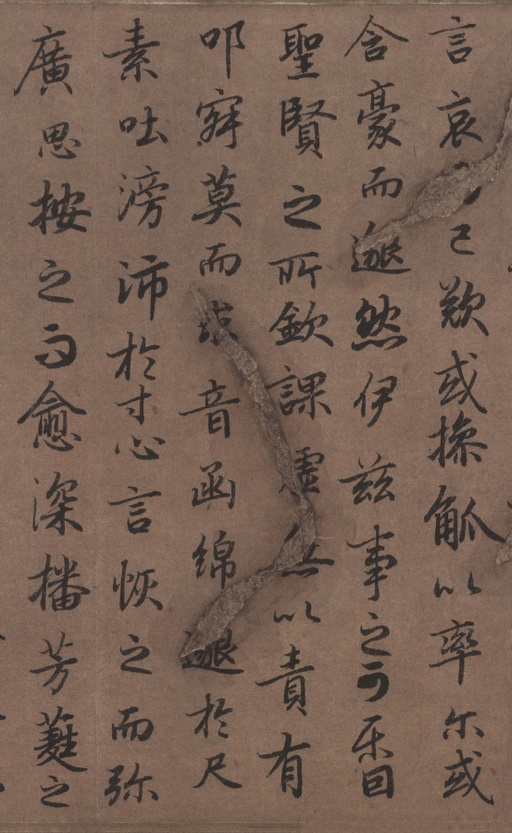 言哀已歎或操觚以率尔或
含豪而邈然伊兹事之可樂固
聖賢之所欽課虚無以責有
叩寂莫而求音函綿邈於尺
素吐滂沛於寸心言恢之而弥
廣思按之而愈深播芳蕤之